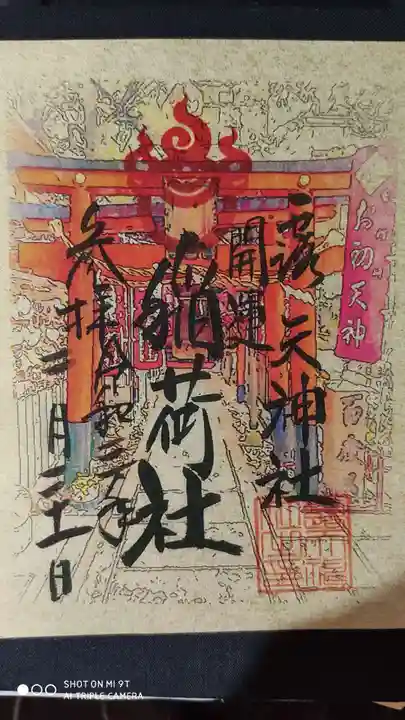 露天神社
開運
稲荷社
参拝令和二年
二月二十一日
お初天神
SHOT ON MI 9T
AI TRIPLE CAMERA